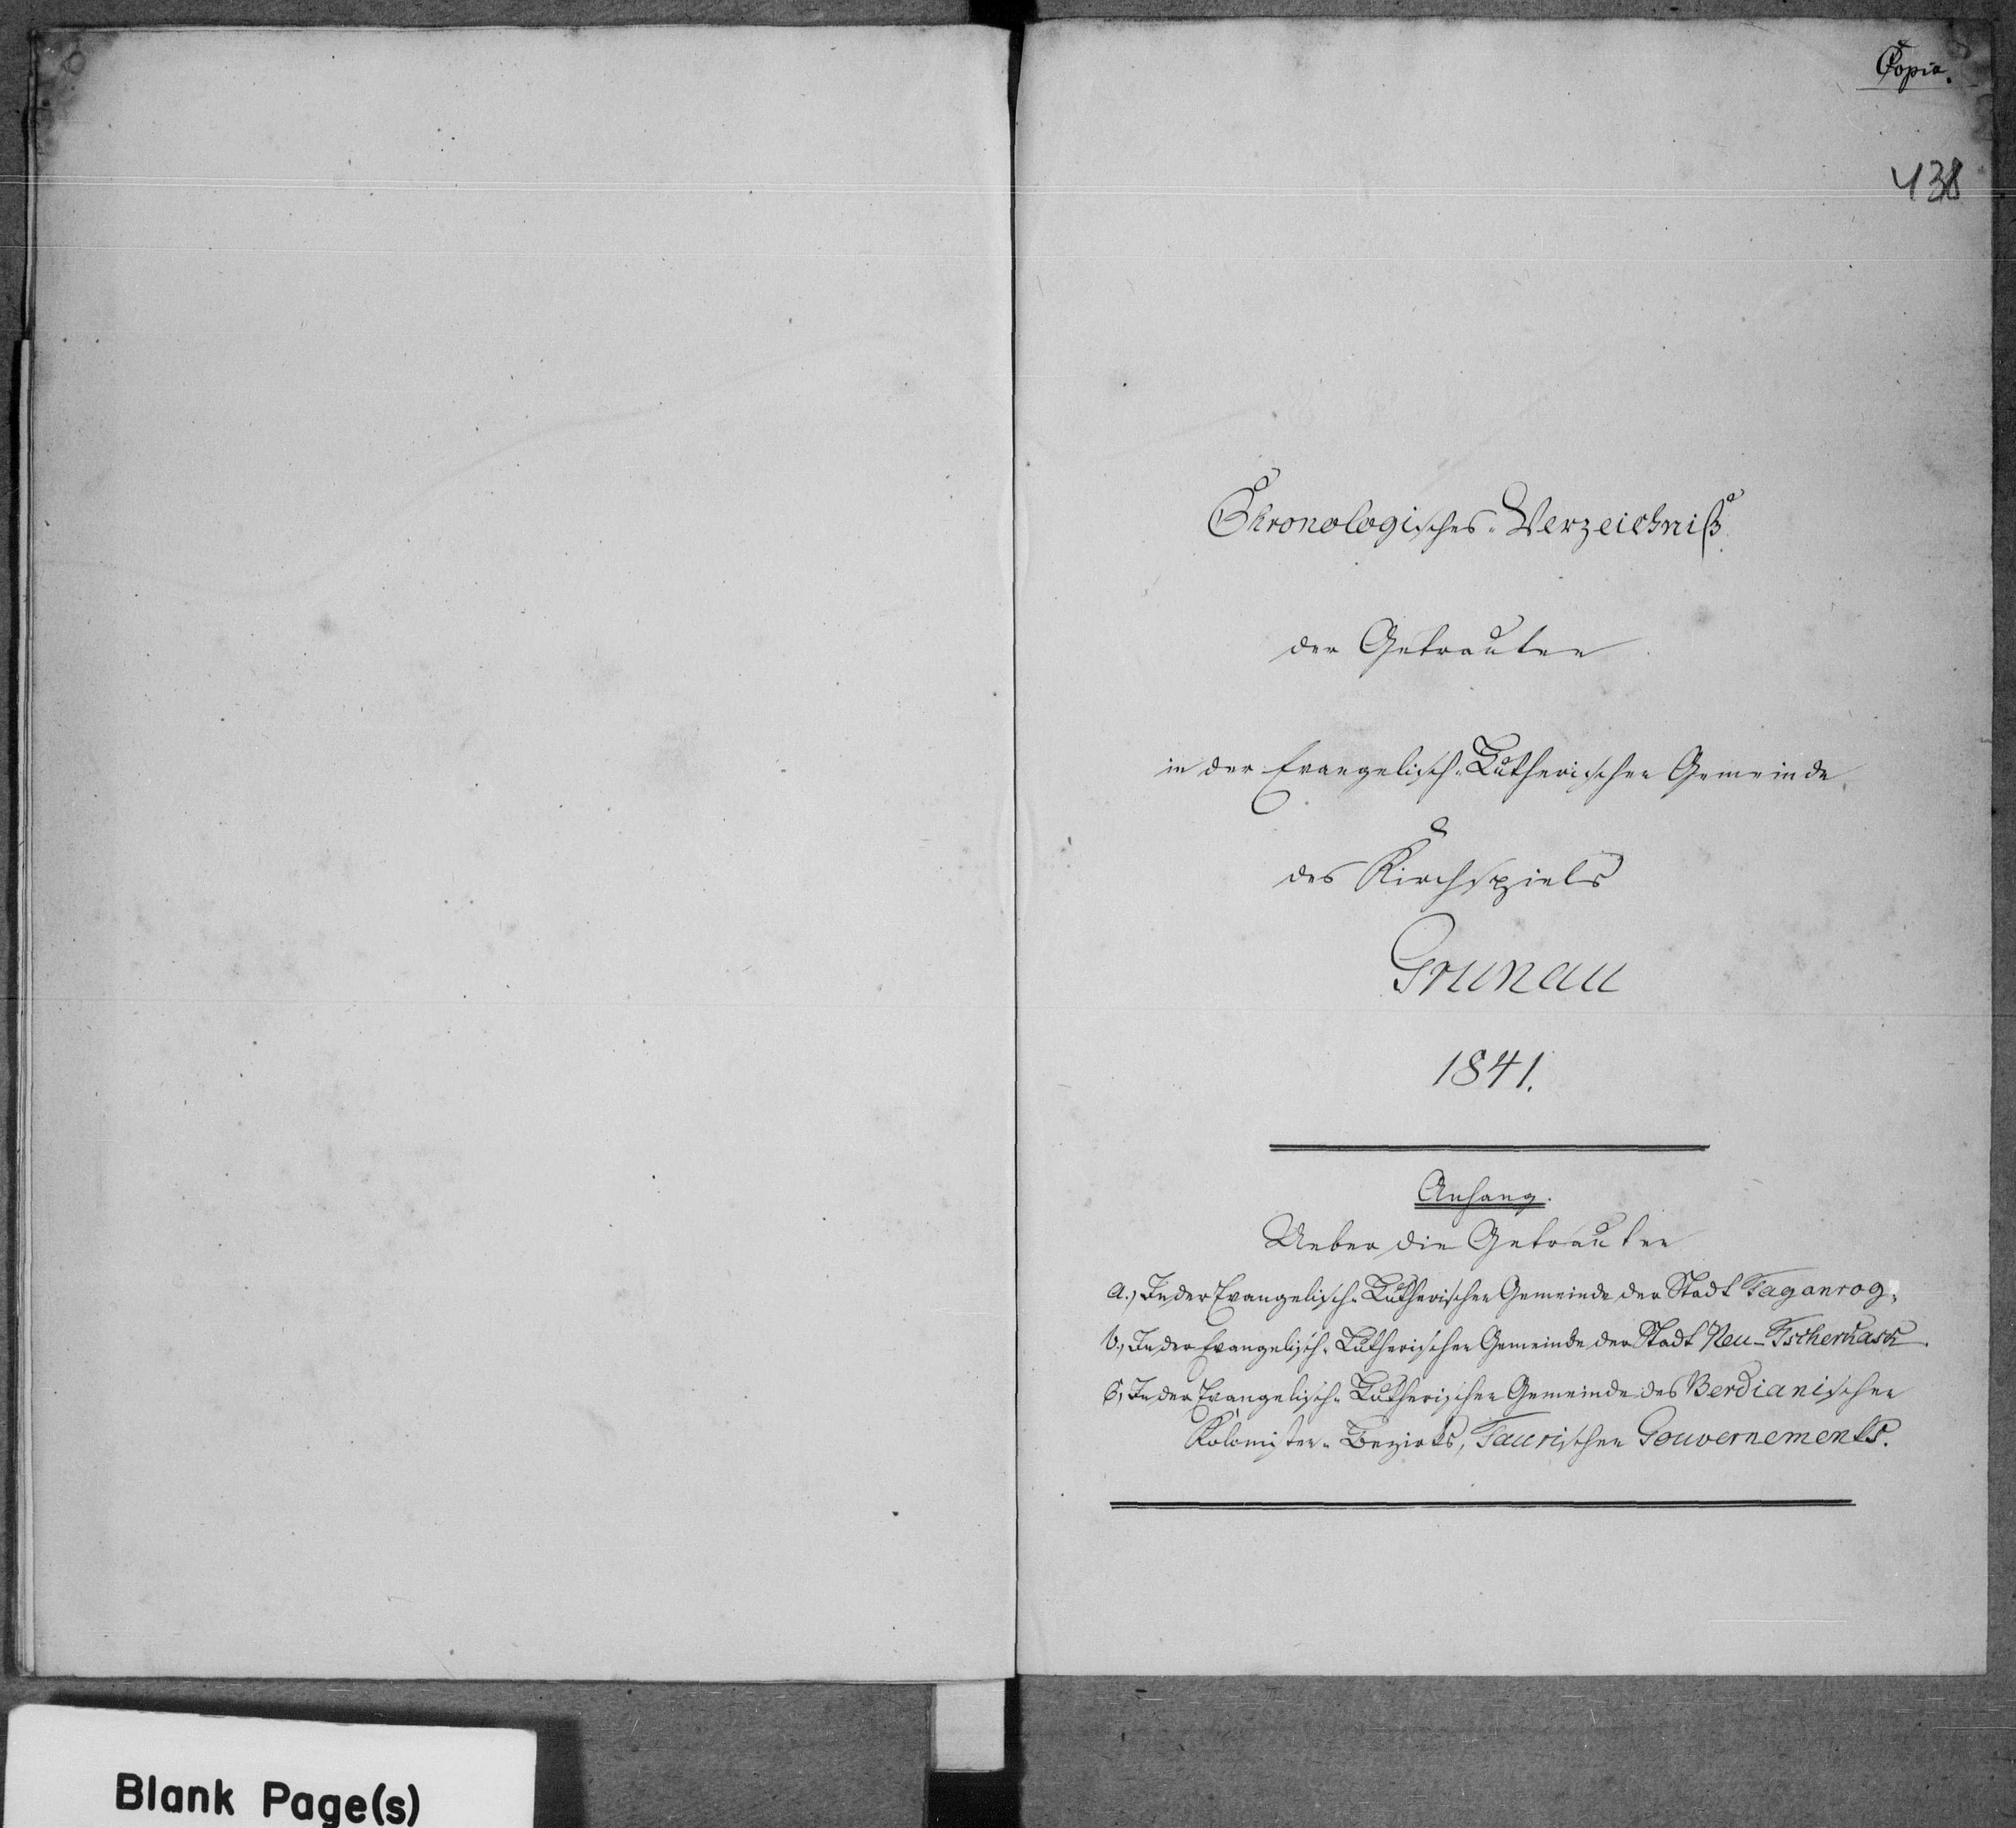 Copia.
438
Chronologisches-Verzeichniß
der Getrauten
in der Evangelisch-Lutherischen Gemeinde
des Kirchspiels
Grunau
1841.
Anhang.
Ueber die Getrauten
a.) In der Evangelisch-Lutherischen Gemeinde der Stadt Taganrog,
b.) In der Evangelisch-Lutherischen Gemeinde der Stadt Neu-Tscherkask.
c.) In der Evangelisch-Lutherischen Gemeinde des Berdianischen
Kolonisten-Bezirks, Taurischen Gouvernements.
Blank Page(s)